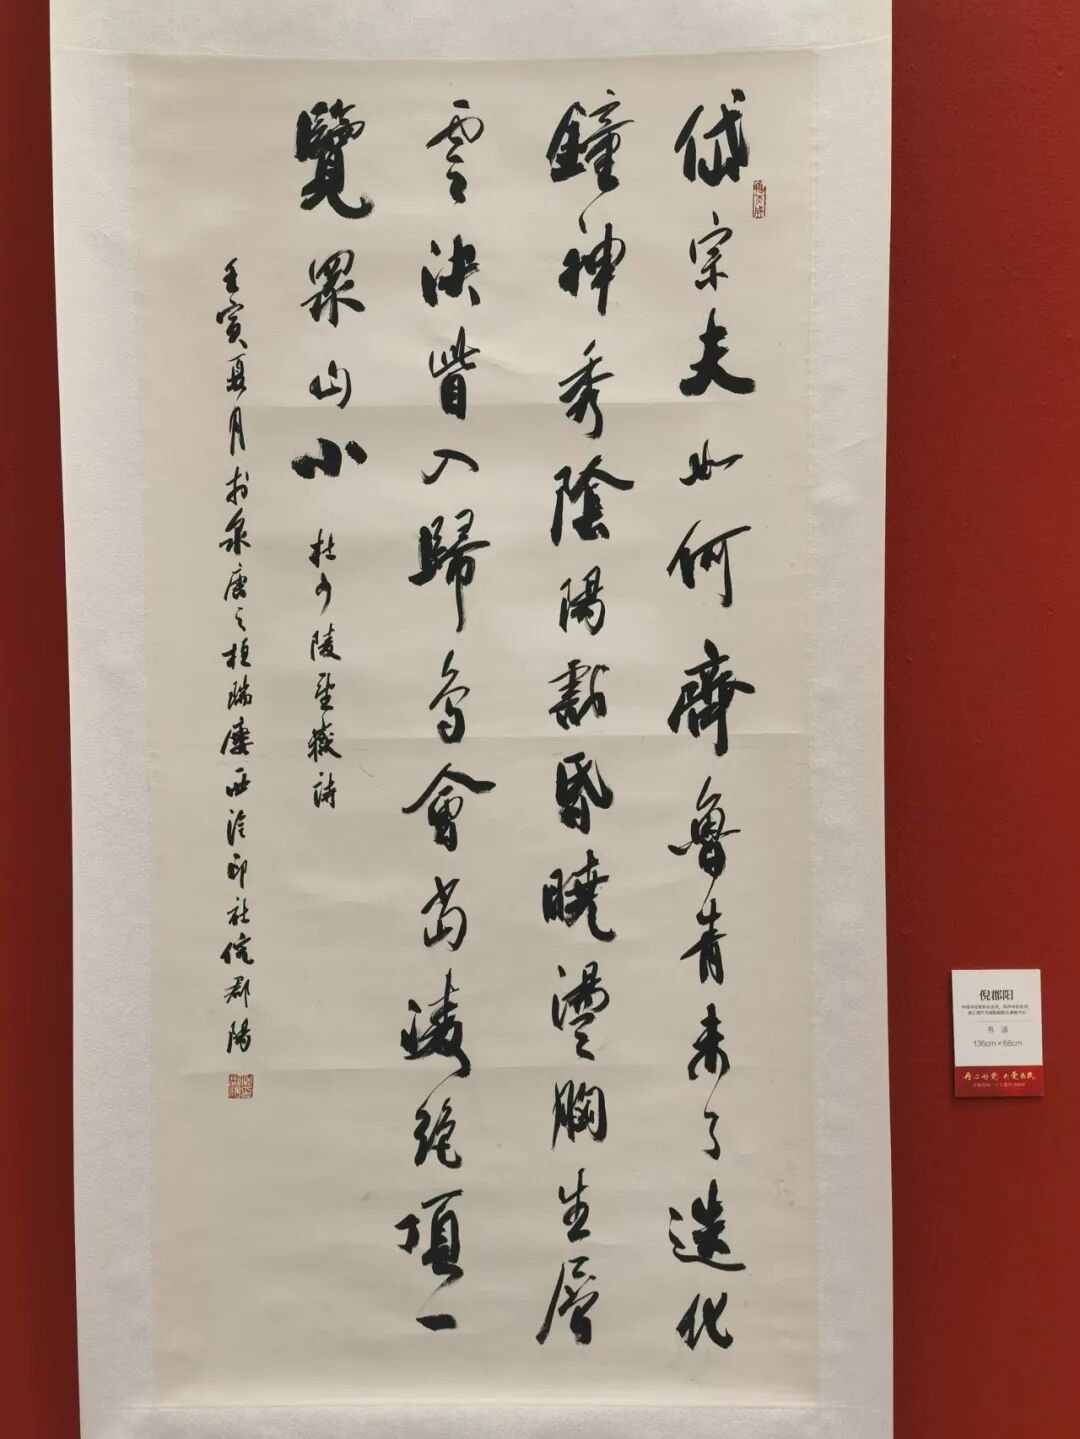 岱宗夫如何齊魯青未了造化
鐘神秀陰陽割昏曉盪胸生層
雲決眥入歸鳥會當凌絕頂一
覽眾山小
杜少陵望嶽詩
壬寅夏月於泉唐之 西泠印社倪郡陽
倪郡阳
书 法
136cm×68cm